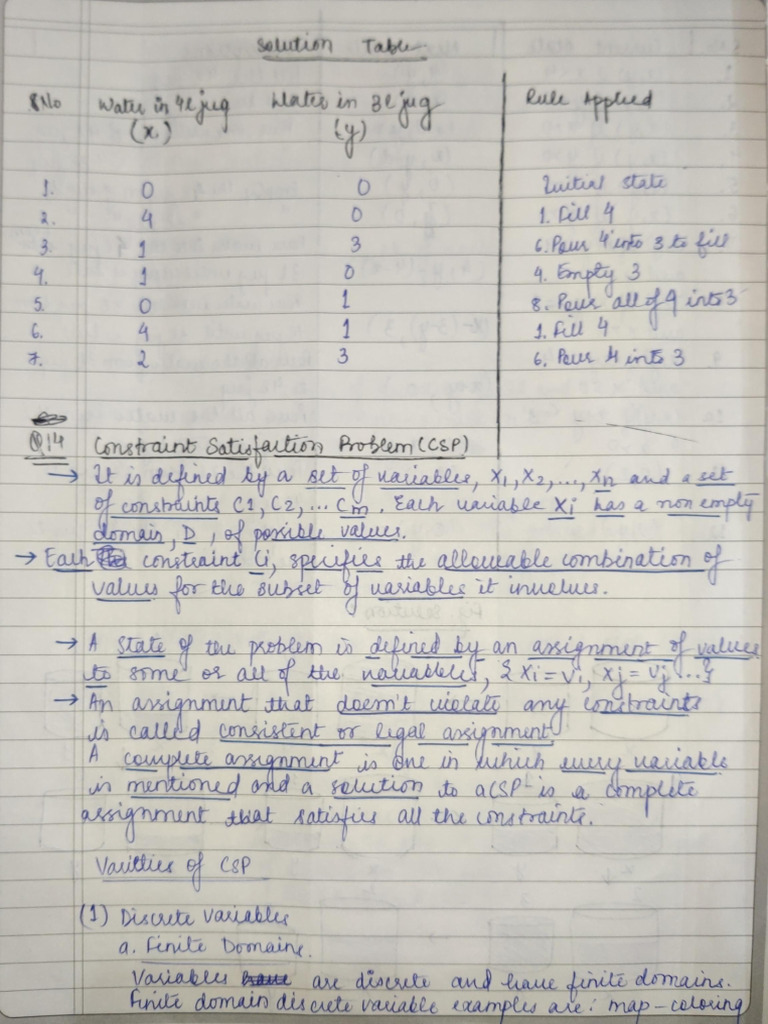 Solution Table
S No Water in 4l jug Water in 3l jug Rule Applied
(x) (y)
1. 0 0 Initial state
2. 4 0 1. Fill 4
3. 1 3 6. Pour 4 into 3 to fill
4. 1 0 4. Empty 3
5. 0 1 8. Pour all of 4 into 3
6. 4 1 1. Fill 4
7. 2 3 6. Pour 4 into 3
Q14 Constraint Satisfaction Problem (CSP)
→ It is defined by a set of variables, X1, X2, ..., Xn and a set
of constraints C1, C2, ... Cm. Each variable Xi has a non empty
domain, D, of possible values.
→ Each constraint Ci, specifies the allowable combination of
values for the subset of variables it involves.
→ A state of the problem is defined by an assignment of values
to some or all of the variables, { Xi = Vi, Xj = Vj ...}
→ An assignment that doesn't violate any constraints
is called consistent or legal assignment
A complete assignment is one in which every variable
is mentioned and a solution to a CSP is a complete
assignment that satisfies all the constraints.
Varities of CSP
(1) Discrete variables
a. Finite Domains.
Variables are discrete and have finite domains.
Finite domain discrete variable examples are: map-coloring